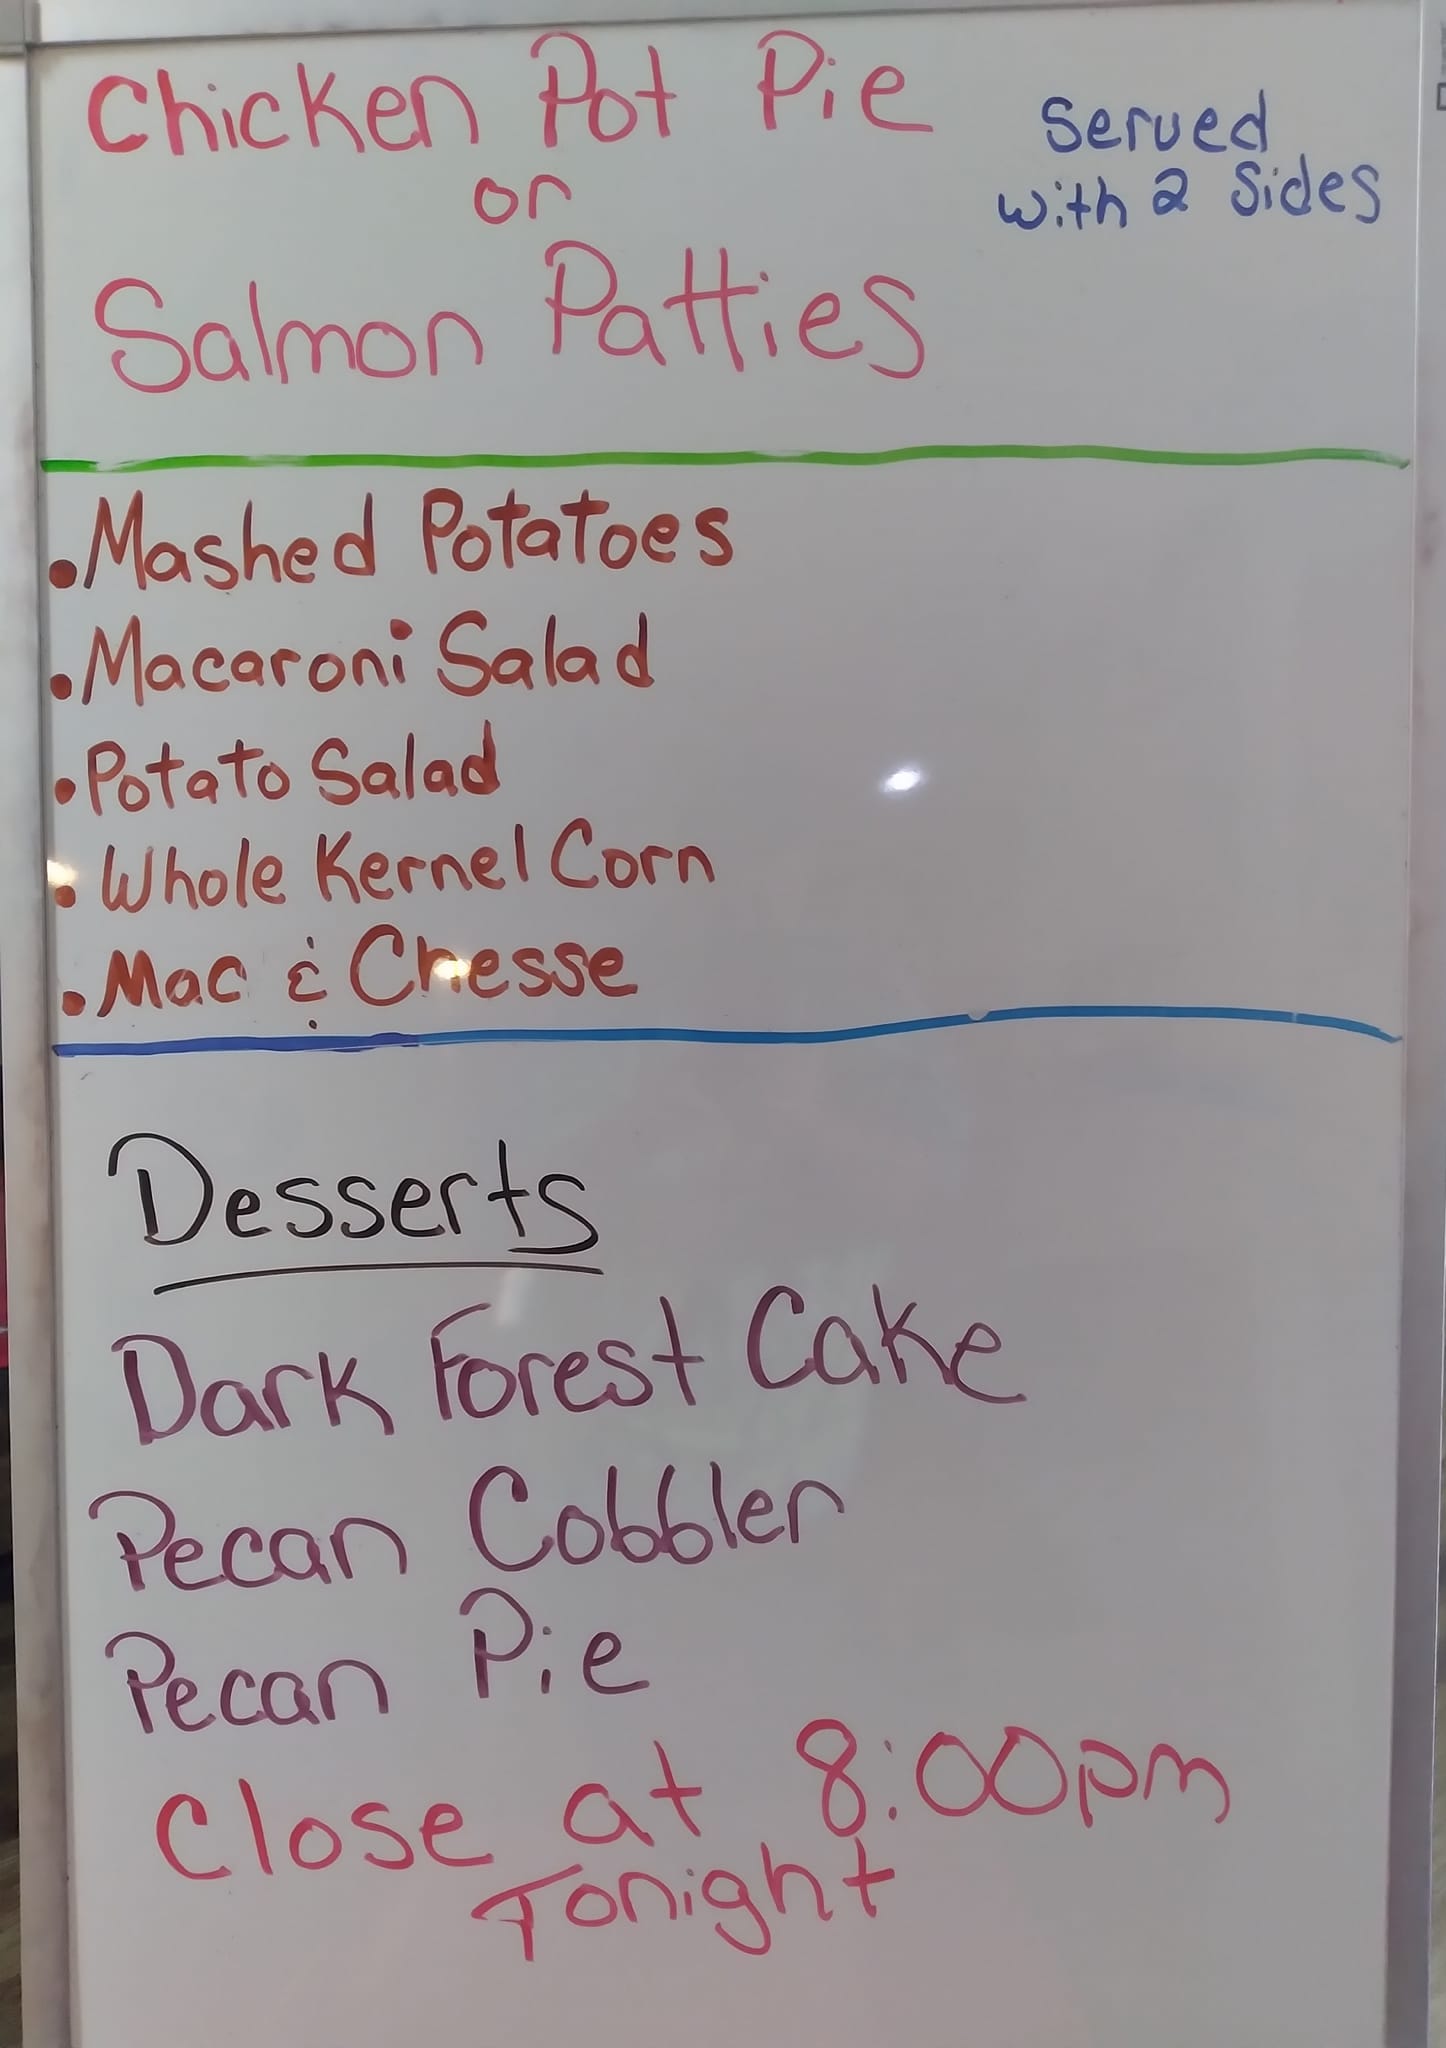 Chicken Pot Pie
or
Salmon Patties
Served
with 2 Sides
• Mashed Potatoes
• Macaroni Salad
• Potato Salad
• Whole Kernel Corn
• Mac & Chesse
Desserts
Dark Forest Cake
Pecan Cobbler
Pecan Pie
Close at 8:00pm
Tonight